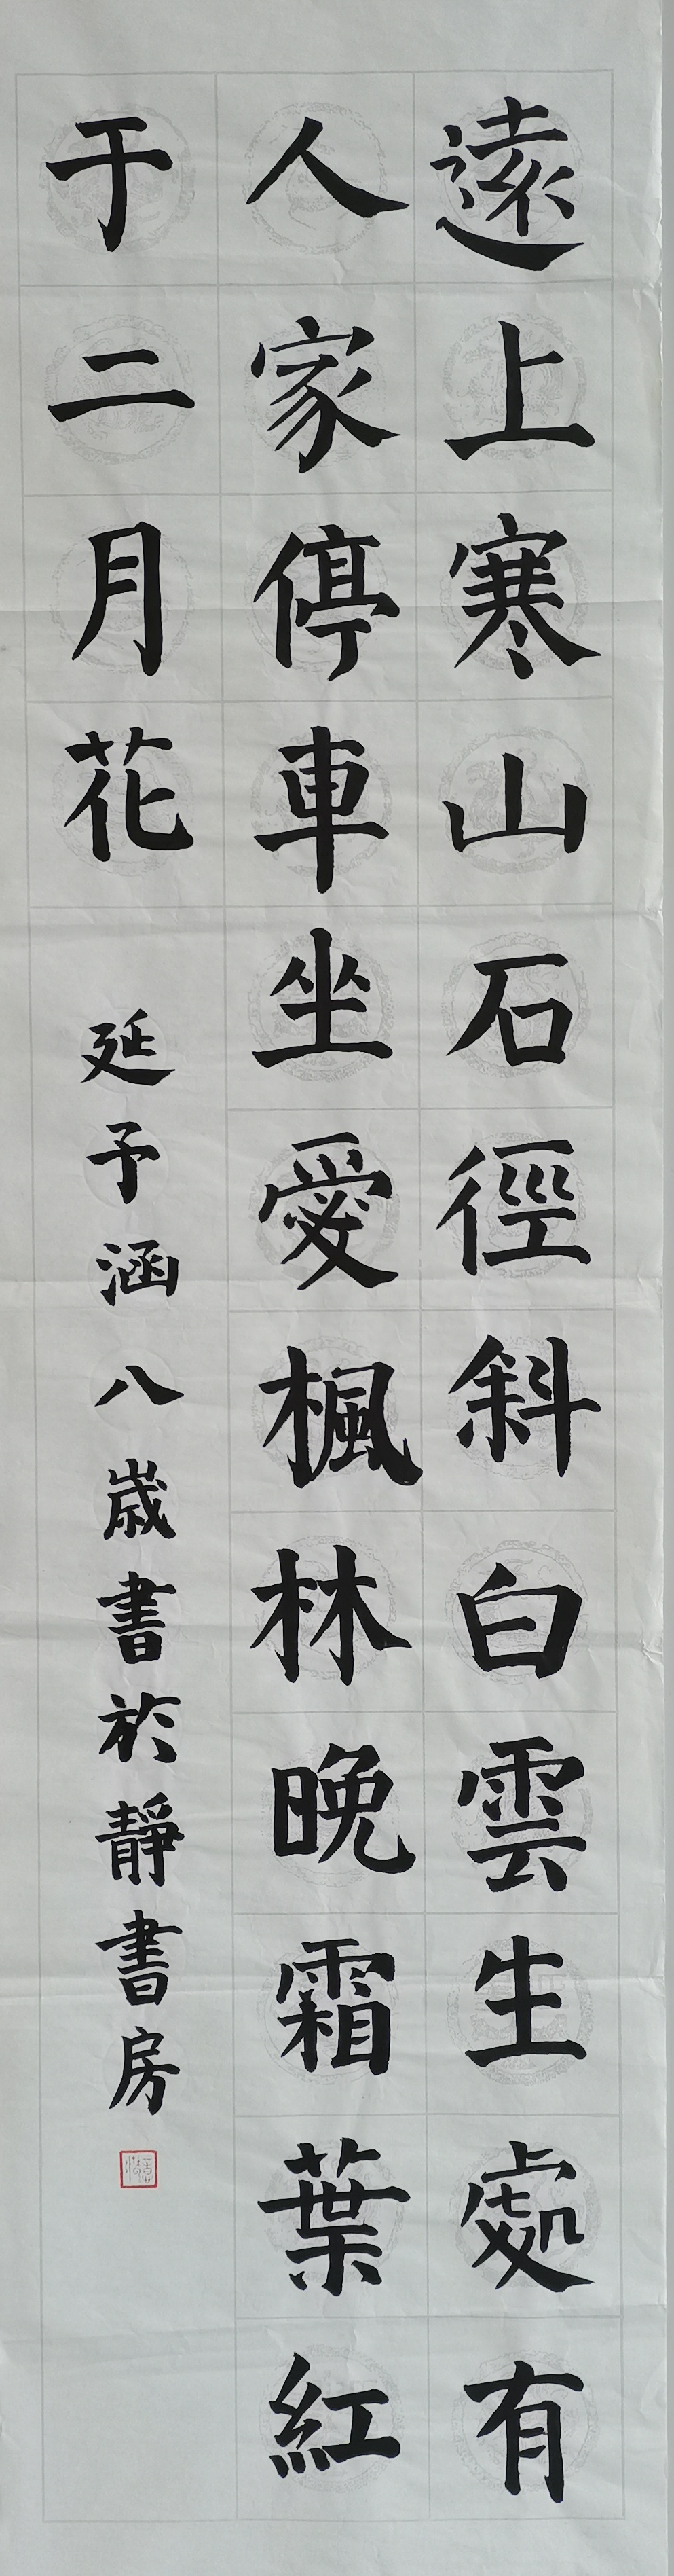 遠上寒山石徑斜白雲生處有
人家停車坐愛楓林晚霜葉紅
于二月花
延予涵八歲書於靜書房